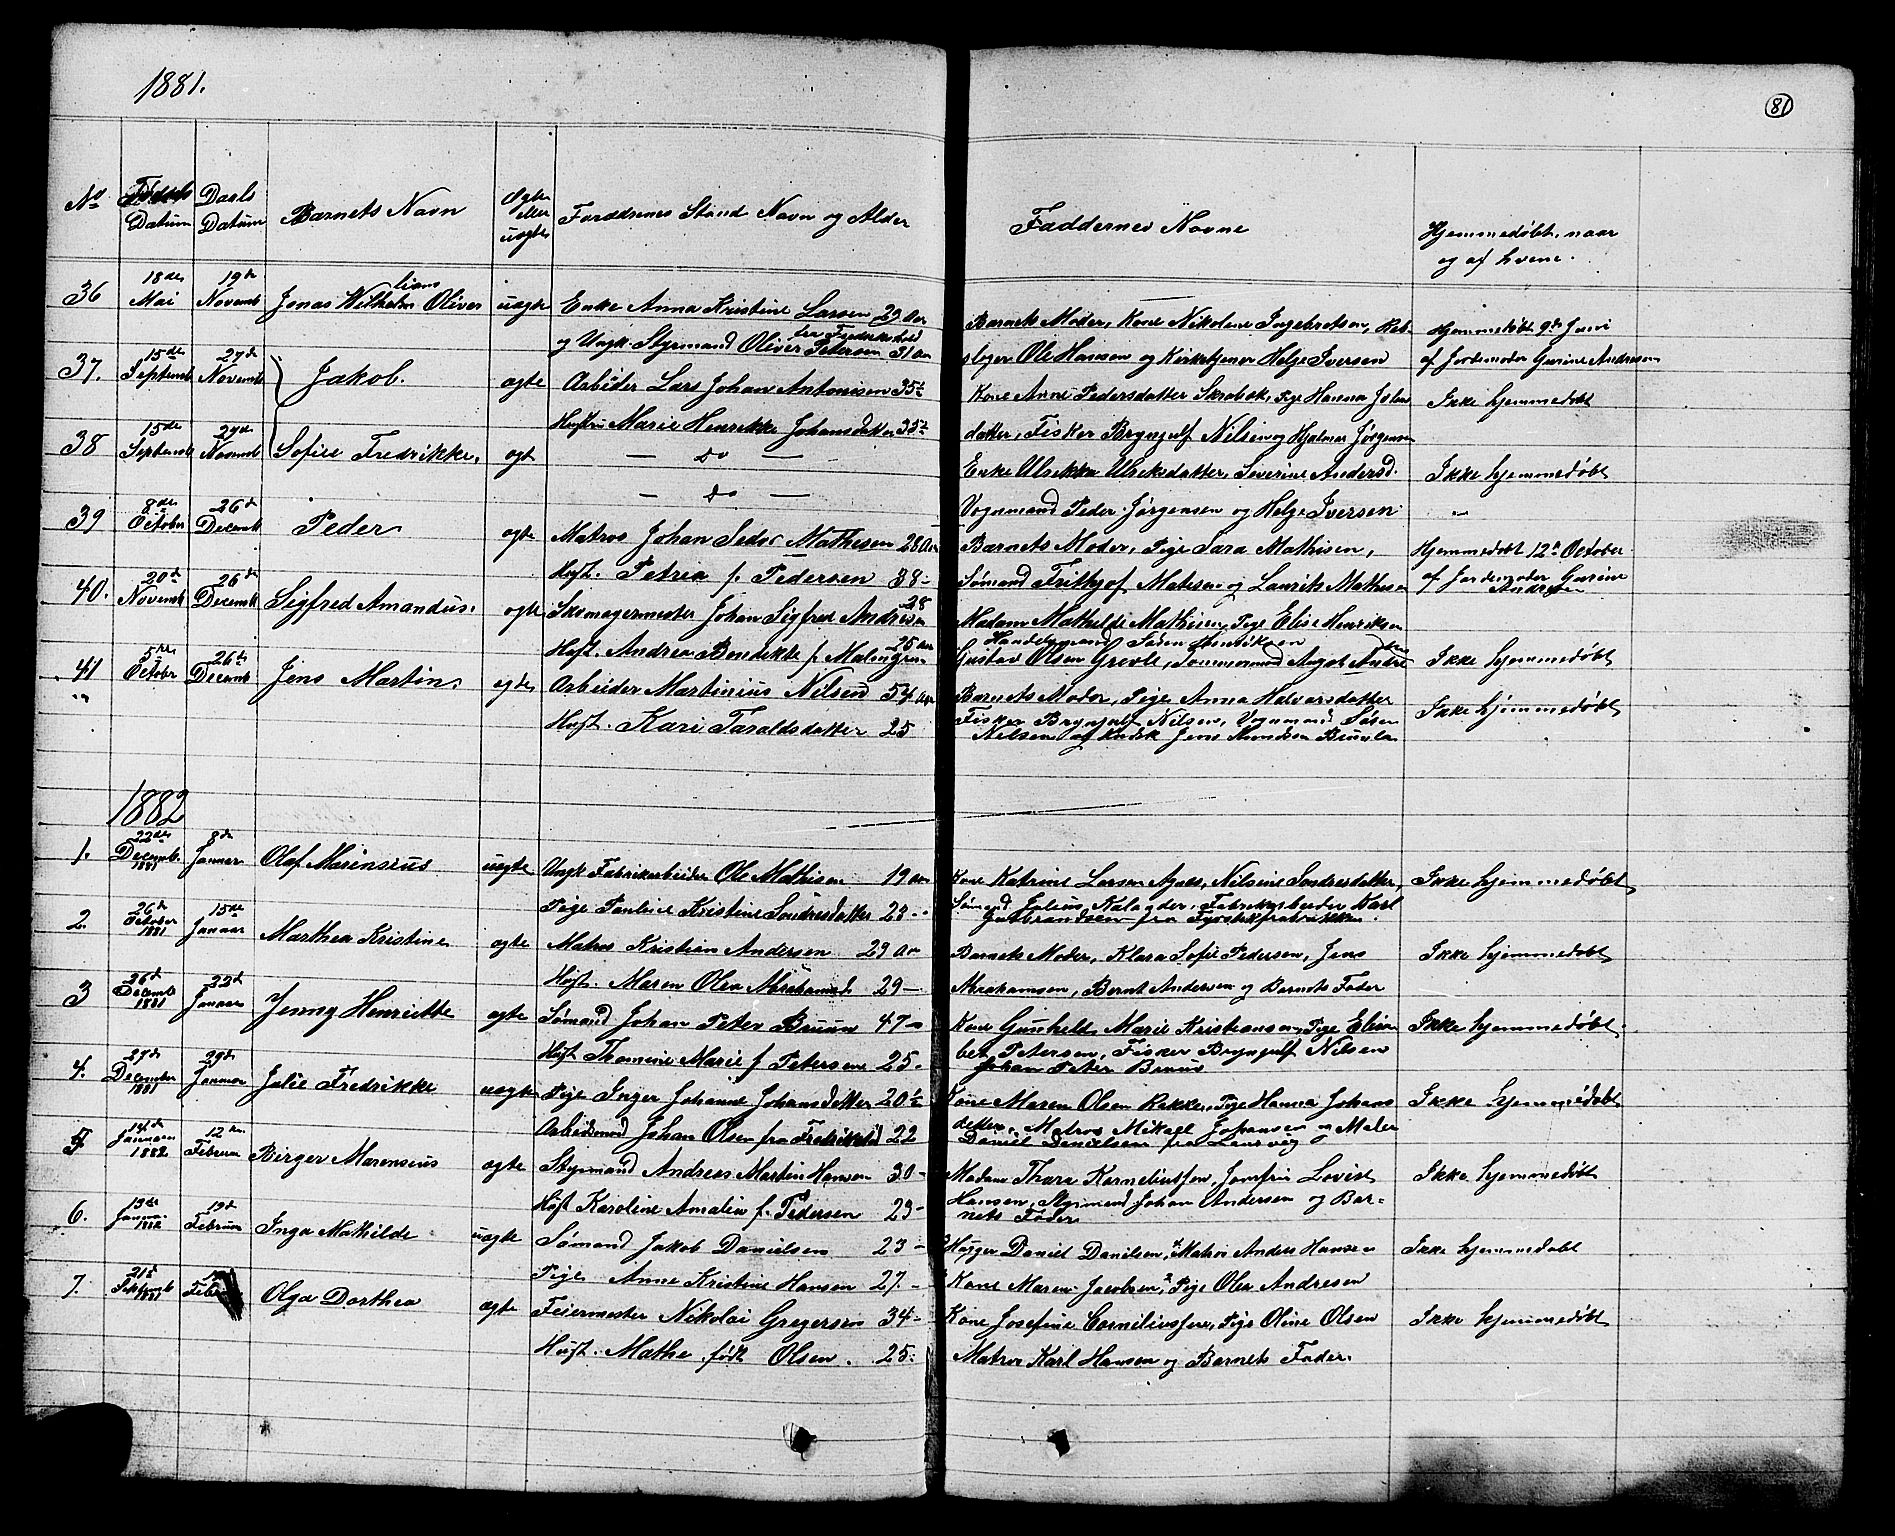 1881.
81
No Føsels Datum
Daabs Datum
Barnets Navn
Ægte eller uægte
Forældrenes Stand Navn og Alder
Faddernes Navne
Hjemmedøbt, naar og af hvem.
36 18de Mai 19de Novemb Jonas Wilhelm Oliver uægte Enke Anna Kristine Larsen 29 Aar
og Ungk. Styrmand Oliver Petersen fra Frederikshald 31 Aar
Barnets Moder, Kone Nikoline Ingebretsen, Reb-
slager Ole Hansen og Kirketjener Helge Iversen
Hjemmedøbt 9de Juni
af Jordemoder Gurine Andresen
37. 15de Septemb 27de Novemb Jakob. ægte Arbeider Lars Johan Antonisen 35½
Hustru Marie Henrikke Johansdatter 35½
Kone Anne Pedersdatter Skrabek, Pige Hanna Johns
datter, Fisker Brynjulf Nilsen og Hjalmar Jørgensen
Ikke hjemmedøbt
38 15de Septemb 27de Novemb Sofie Fredrikke. ægt — do —
— do —
Enke Ulrikka Ulriksdatter, Severine Andersd.
Vognmand Peder Jørgensen og Helge Iversen
Ikke hjemmedøbt
39 8de October 26d Decemb Peder ægte Matros Johan Mathisen 28 Aar
Hust. Petria f. Pedersen 38 -
Barnets Moder, Pige Sara Mathisen,
Sømand Frithjof Matisen og Laurits Mathisen
Hjemmedøbt 12te October
af Jordemoder Gurine
Andresen
40. 20de Novemb 26de Decemb Sigfred Amandus. ægte Skomagermester Johan Sigfred Andresen 28
Hust. Andrea Bendikte f. Malmgren 26 Aar
Madam Mathilde Mathisen, Pige Elise Henriksen
Handelsmand Søren Henriksen
Gustav Olsen Grevle, Tømmermand August Andre-
sen
Ikke hjemmedøbt
41 5te October 26de Decemb Jens Martin. ægte Arbeider Martinius Nilsen 54 Aar
Hust. Kari Taraldsdatter 25
Barnets Moder, Pige Anna Halvorsdatter
Fisker Brynjulf Nilsen, Vognmand Søren
Nilsen og Jens Brunla
Ikke hjemmedøbt
1882
1. 22de Decemb. 1881 8de Januar Olaf Marensius uægte Ungk Fabrikarbeider Ole Mathisen 19 Aar
Pige Pauline Kristine Sondresdatter 23 -
Kone Katrine Larsen Agnes, Nilsine Sondresdatter,
Sømand Julius, Fabrikarbeider Karl
Gulbrandsen fra Fyrstikfabrikken.
Ikke hjemmedøbt
2. 26de October 1881 15de Januar Marthea Kristine ægte Matros Kristian Andersen 29 Aar
Hust. Maren Olea Abrahamsd. 29 -
Barnets Moder, Klara Sofie Pedersen, Jens
Abrahamsen, Bernt Andersen og Barnets Fader
Ikke hjemmedøbt
3 26d Decemb 1881 22d Januar Jenny Henriette ægte Sømand Johan Peter Bruun 47 -
Hust Thomine Marie f. Petersen 25 -
Kone Gunhild Marie Kristiansen, Pige Elisa-
bet Petersen, Fisker Brynjulf Nilsen
Johan Peter Bruun
Ikke hjemmedøbt
4. 27d December 1881 29de Januar Julie Fredrikke uægte Pige Inger Johanne Johansdatter 20½
Arbeidsmand Johan Olsen fra Fredrikstad 22
Kone Maren Olsen Rakke, Pige Hanna Johans
datter, Matros Mikael Johansen og Maler
Daniel Danielsen fra Laurvig
Ikke hjemmedøbt
5 14de Januar 1882 12te Februar Birger Marensius ægte Styrmand Andreas Martin Hansen 30 -
Hust Karoline Amalie f. Pedersen 23 -
Madam Thara Korneliussen, Jomfru Lovise
Hansen, Styrmand Johan Andersen og Bar-
nets Fader
Ikke hjemmedøbt
6. 19de Januar 1882 19de Februar Inga Mathilde uægte Sømand Jakob Danielsen 23 -
Pige Anne Kristine Hansen 27. -
Daniel Danielsen, Matros Anders Hansen
Kone Maren Jacobsen, Pige Olea Andresen
Ikke hjemmedøbt
7. 21d Septemb 1881 Februar Olga Dorthea ægte Feiermester Nikolai Gregersen 34 -
Hust. Mathe født Olsen. 25.
Kone Josefine Corneliussen, Pige Oline Olsen
Matros Karl Hansen og Barnets Fader.
Ikke hjemmedøbt